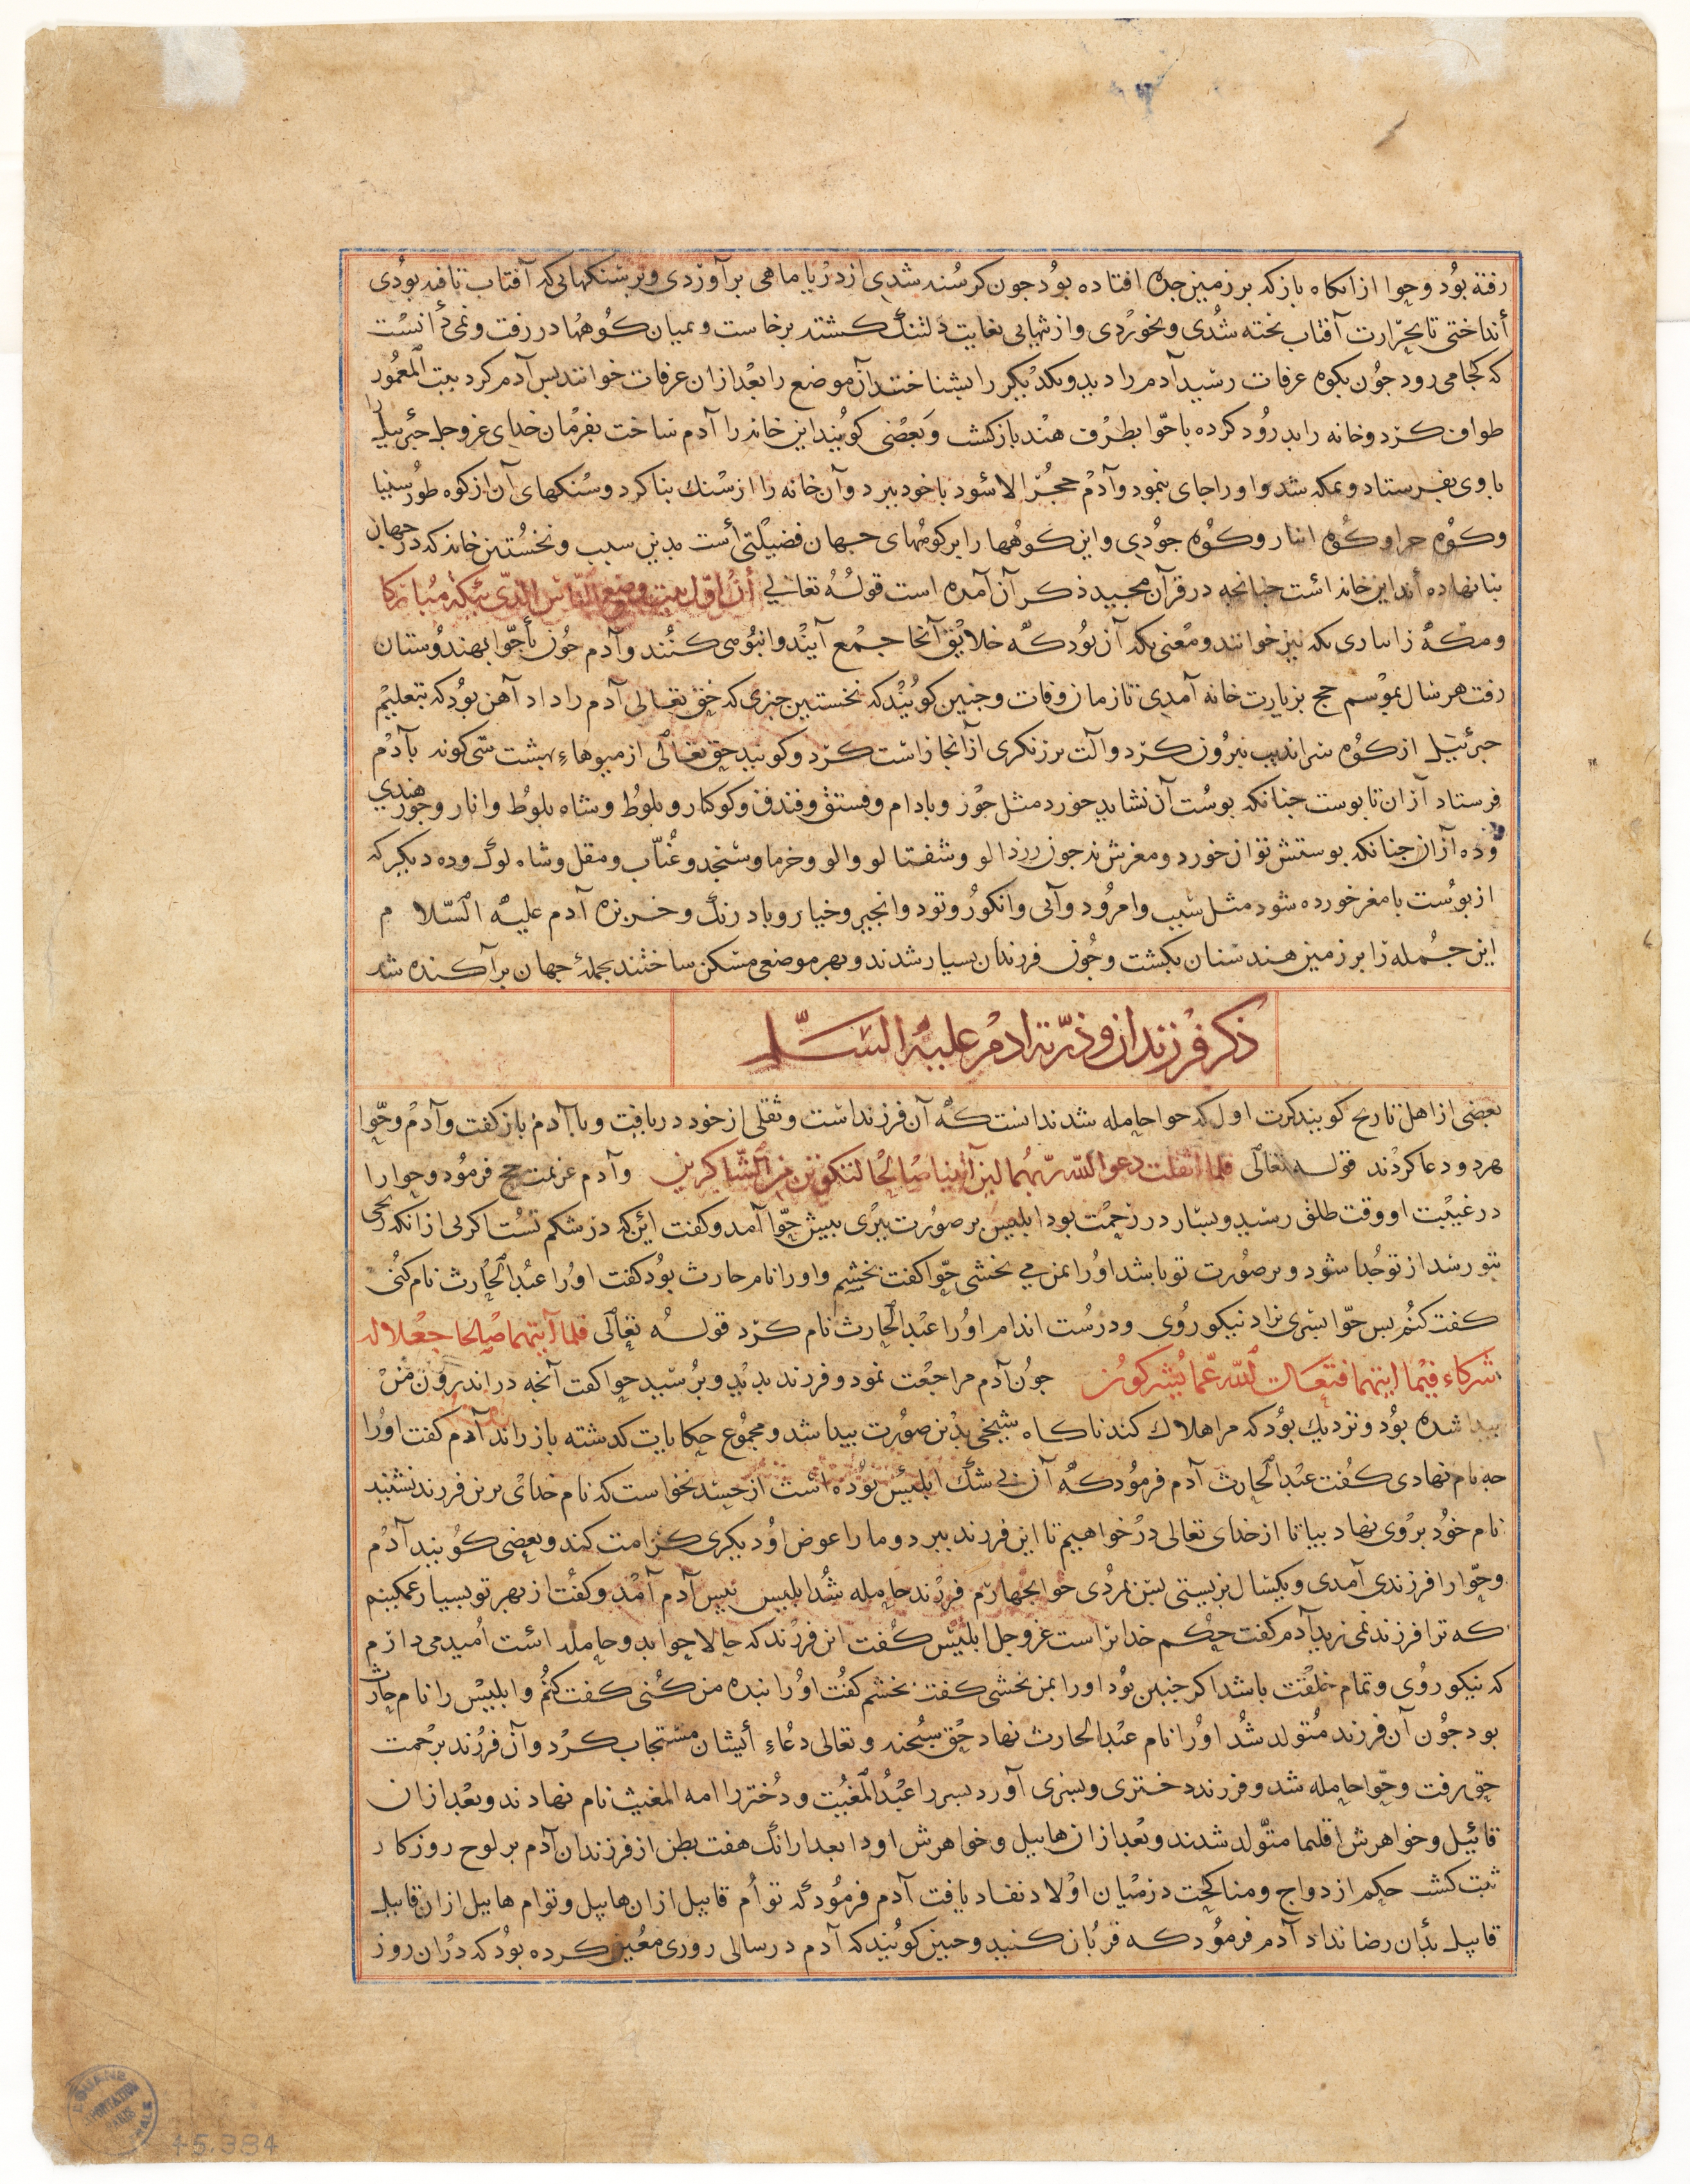 رفته بود وحوا ازانگاه بازکه بر زمین جده افتاده بود جون کرسنه شدی از دریا ماهی برآوردی وبر سنکهایی که آفتاب تافته بودی
أنداختی تا بحرارت آفتاب پخته شدی وبخوردی واز تنهایی بغایت دلتنک کشته برخاست ومیان کوهها در رفت ونمی دانست
که کجا می رود جون بکوه عرفات رسید آدم را دید ویکدیکر را بشناختند آن موضع را بعد ازان عرفات خوانند بس آدم کرد بیت المعمور را
طواف کرد وخانه را بدرود کرده با حوا بطرف هند بازکشت وبعضی کویند این خانه را آدم ساخت بفرمان خدای عزوجل جبرئیل
با وی بفرستاد وبمکه شد واو را جای بنمود وآدم حجر الاسود با خود ببرد وآن خانه را از سنک بنا کرد وسنکهای آن از کوه طور سینا
وکوه حرا وکوه وکوه جودی واین کوهها را بر کوههای جهان فضیلتی أست بدین سبب ونخستین خانه که در جهان
بنا نهاده أند این خانه است جنانجه در قرآن مجید ذکر آن آمده است قوله تعالی أن اول بیت وضع للناس للذی ببکة مبارکا
ومکه را بکه نیز خوانند ومعنی بکه آن بود که خلایق آنجا جمع آیند وانبوهی کنند وآدم جون با حوا بهندوستان
رفت هر سال بموسم حج بزیارت خانه آمدی تا زمان وفات وجنین کویند که نخستین جیزی که حق تعالی آدم را داد آهن بود که بتعلیم
جبرئیل از کوه سراندیب بیرون کرد وآلت برزنکری از آنجا راست کرد وکویند حق تعالی از میوهاء بهشت سی کونه بآدم
فرستاد آزان تا بوست جنانکه بوست آن نشاید خورد مثل جوز وبادام وفستق وفندق وکوکنار وبلوط وشاه بلوط وانار وجوز هندی
وده آزان جنانکه بوستش توان خورد ومغزش نه جون زردالو وشفتالو والو وخرما وسنجد وعناب ومقل وشاه لوک وده دیکر که
از بوست با مغز خورده شود مثل سیب وامرود وآبی وانکور وتود وانجیر وخیار وبادرنک وخربزه آدم علیه السلام
این جمله را بر زمین هندستان بکشت وجون فرزندان بسیار شدند وبهر موضعی مسکن ساختند بجمله جهان برآکنده شد
ذکر فرزندان وذریه ادم علیه السلم
بعضی از اهل تاریخ کویند کرت اول که حوا حامله شد ندانست که آن فرزند است وثقلی از خود دریافت وبا آدم باز کفت وآدم وحوا
هر دو دعا کردند قوله تعالی فلما اثقلت دعوا الله ربهما لئن آتیتنا صالحا لنکونن من الشاکرین وآدم عزیمت حج فرمود وحوا را
در غیبت او وقت طلق رسید وبسیار در زحمت بود ابلیس بر صورت بیری ببیش حوا آمد وکفت این که در شکم تست اکر بی ازانکه رنجی
بتو رسد از تو جدا شود وبر صورت تو باشد او را بمن می بخشی حوا کفت بخشم واو را نام حارث بود کفت او را عبد الحارث نام کنی
کفت کنم بس حوا بسری بزاد نیکو روی ودرست اندام او را عبد الحارث نام کرد قوله تعالی فلما آتیهما صالحا جعلا له
شرکاء فیما اتیهما فتعالی الله عما یشرکون جون آدم مراجعت نمود وفرزند بدید وبرسید حوا کفت آنجه در اندرون من
بیدا شده بود ونزدیک بود که مرا هلاک کند ناکاه شیخی بدین صورت بیدا شد ومجموع حکایات کذشته باز راند آدم کفت او را
جه نام نهادی کفت عبد الحارث آدم فرمود که آن بی شک ابلیس بوده است از حسد نخواست که نام خدای برین فرزند نشیند
نام خود بر وی نهاد بیا تا از خدای تعالی در خواهیم تا این فرزند ببرد وما را عوض او دیکری کرامت کند وبعضی کویند آدم
وحوا را فرزندی آمدی ویکسال بزیستی بس بمردی حوا بجهارم فرزند حامله شد ابلیس بیش آدم آمد وکفت از بهر تو بسیار غمکینم
که ترا فرزند نمی زید آدم کفت حکم خدا تراست عزوجل ابلیس کفت این فرزند که حالا حوا بدو حامله است امید می دارم
که نیکو روی وتمام خلقت باشد اکر جنین بود او را بمن بخشی کفت بخشم کفت او را بنده من کنی کفت کنم وابلیس را نام حارث
بود جون آن فرزند متولد شد او را نام عبد الحارث نهاد حق سبحنه وتعالی دعاء أیشان مستجاب کرد وآن فرزند برحمت
حق رفت وحوا حامله شد وفرزند دختری وبسری آورد بسر را عبد المغیث ودختر را امه المغیث نام نهادند وبعد ازان
قائیل وخواهرش اقلیما متولد شدند وبعد ازان هابیل وخواهرش اودا بعد ازانک هفت بطن از فرزندان آدم بر لوح روزکار
ثبت کشت حکم ازدواج ومناکحت در میان اولاد نفاد یافت آدم فرمود که توأم قابیل ازان هابیل وتوام هابیل ازان قابیل
قابیل بدان رضا نداد آدم فرمود که قربان کنید وجنین کویند که آدم در سالی روزی معین کرده بود که دران روز
45.384